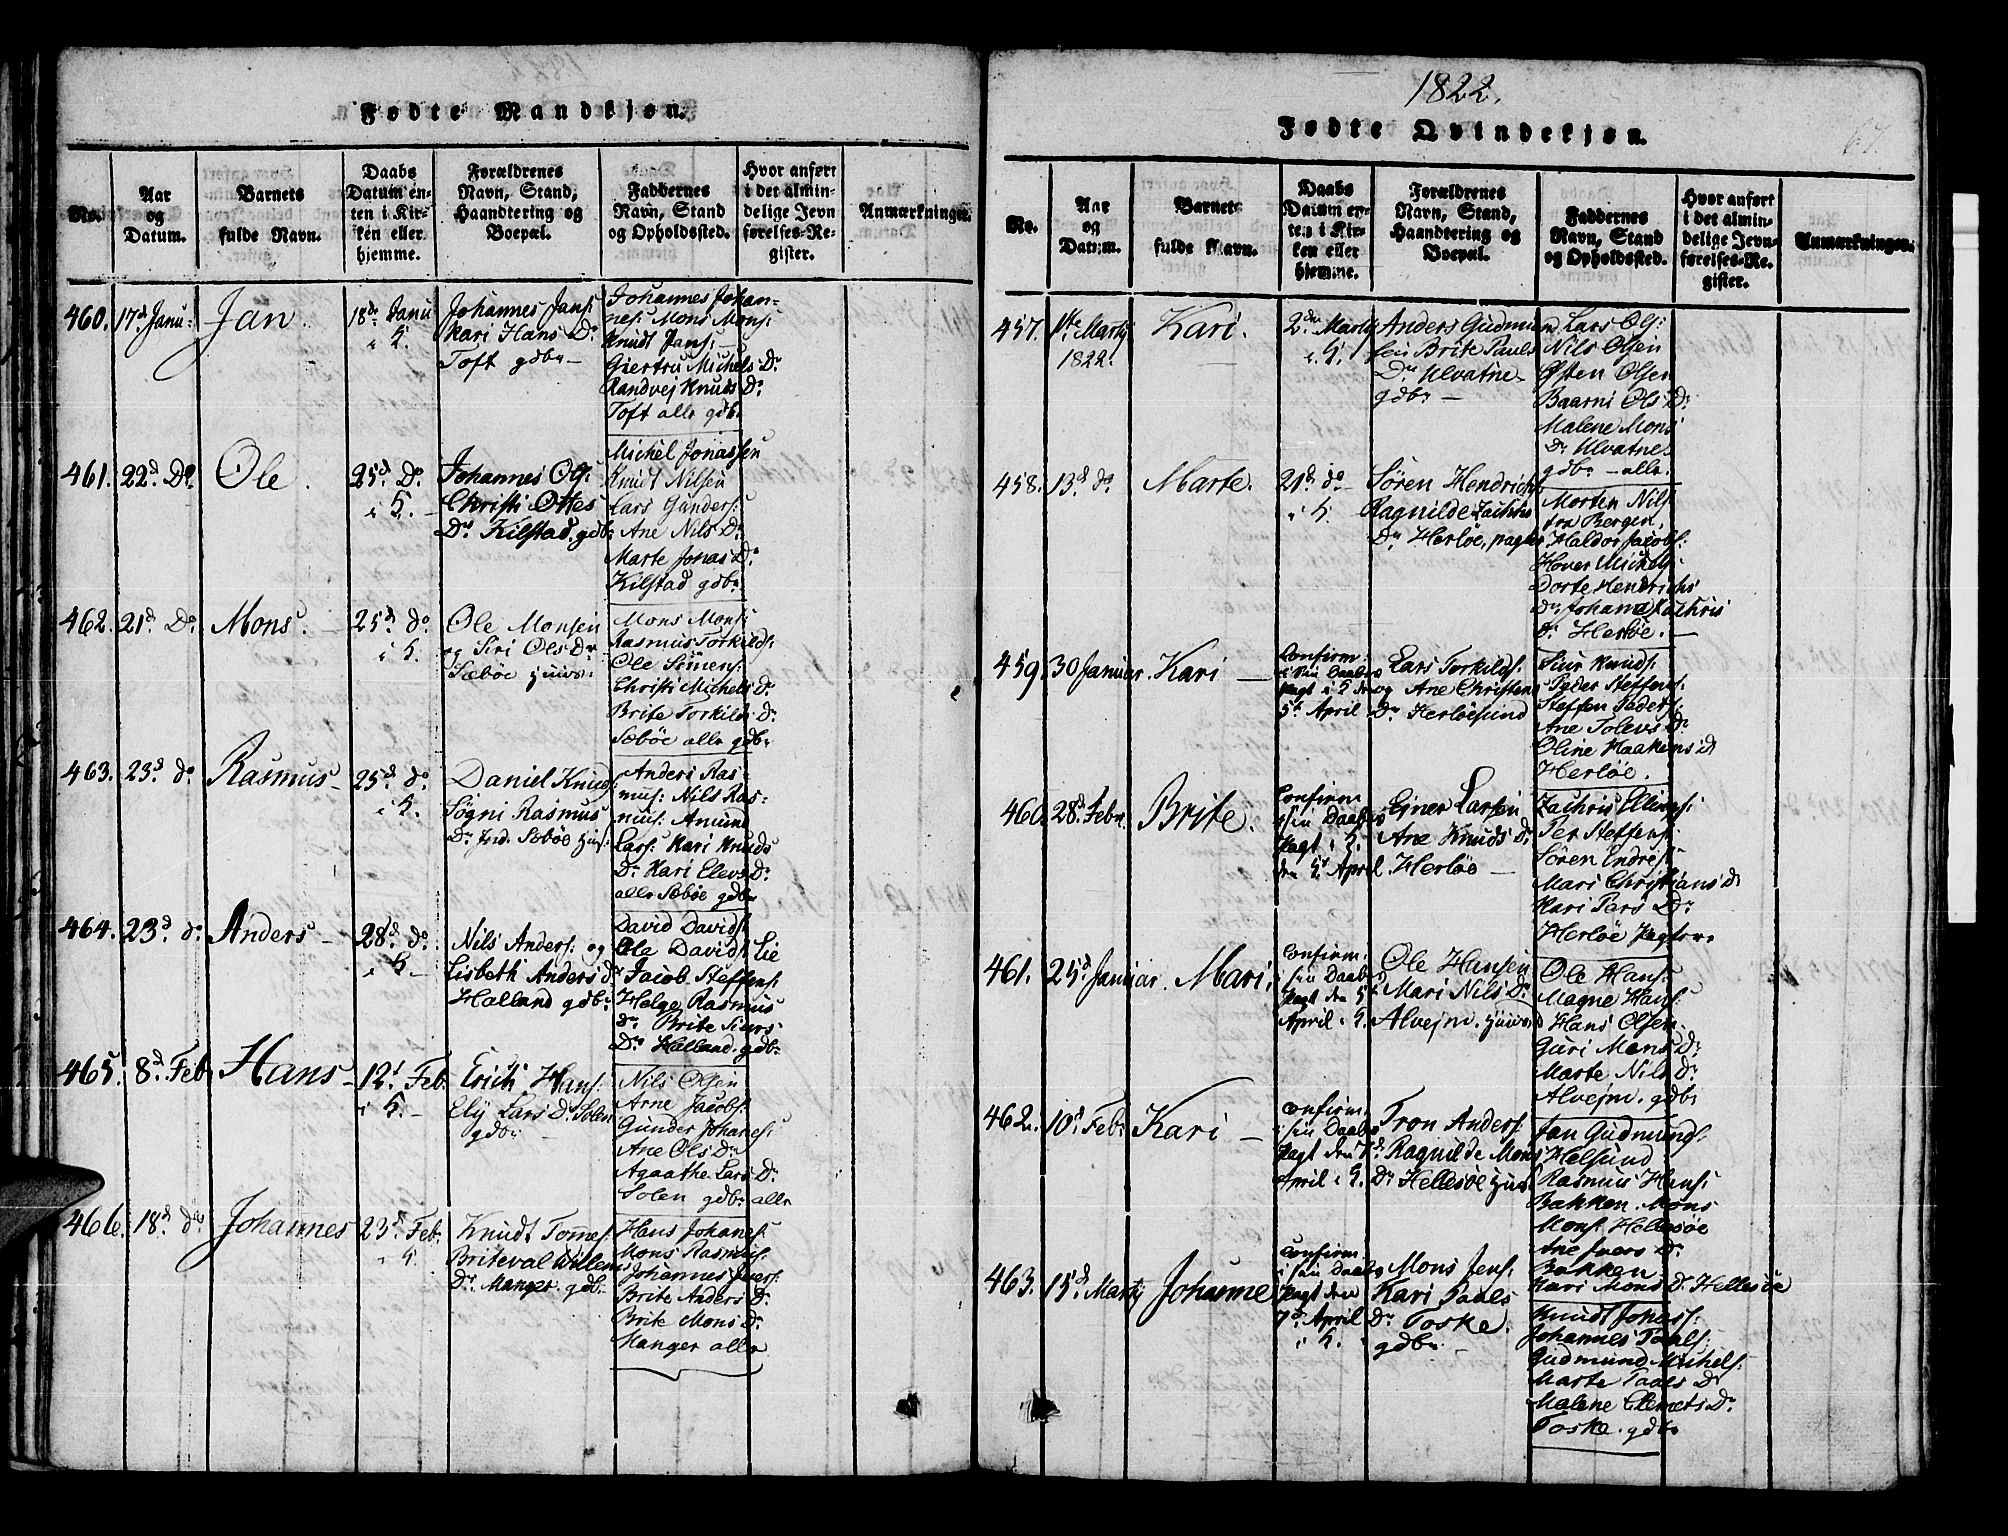 Fødte Mandkjøn.
No.
Aar
og
Datum.
Barnets
fulde Navn.
Daabs
Datum en-
ten i Kir-
ken eller
hjemme.
Forældrenes
Navn, Stand,
Haandtering og
Boepæl.
Faddernes
Navn, Stand
og Opholdssted.
Hvor anført
i det almin-
delige Jevn
førelses-Re-
gister.
Anmærkninger.
460. 17d Janu: Jan. 18de Janu
i K.
Johannes Jans:
Kari Hans Dr
Toft gdbr
Johannes Johan-
nes: Mons Mons:
Knudt Jans:
Giertru Michels Dr
Randvej Knuds Dr
Toft alle gdbr
461. 22d Do Ole. 25d Do
i K.
Johannes Ols:
Christi Ottes
Dr Kilstad. gdbr
Michel Jonassen
Knudt Nilsen
Lars Gunders:
Ane Nils Dr
Marte Jonas Dr
Kilstad gdbr
462. 21d Do Mons. 25d do
i K.
Ole Monsen
og Siri Ols Dr
Sæbøe
Mons Mons:
Rasmus Torkilds:
Ole Simens:
Christi Michels Dr
Brite Torkilds Dr
Sæbøe alle gdbr
463. 23d do Rasmus 25d do
i K.
Daniel Knuds:
Søgni Rasmus
Dr Sæbøe
Anders Ras-
mus: Nils Ras-
mus: Amund
Lars: Kari Knuds
Dr Kari Elevs Dr
alle Sæbøe gdbr
464. 23d do Anders 28d do
i K.
Nils Anders: og
Lisbeth Anders d
Halland gdbr
David Davids:
Ole Davids: Lie
Jacob Steffens:
Helge Rasmus
dr Brite Siurs
Dr Halland. gdbr
465. 8d Feb Hans 12t Feb.
i K.
Erich Hans:
Ely Lars Dr Solen
gdbr
Nils Olsen
Arne Jacobs:
Gunder Johanes:
Ane Ols Dr
Agaathe Lars Dr
Solen gdbr alle
466. 18d do Johannes 23d Feb.
i K.
Knudt Tomes:
Briteval Willems
Dr Manger. gdbr
Hans Johanes:
Mons Rasmus:
Johannes Ivers:
Brite Anders Dr
Brite Mons Dr
Manger alle
1822.
Fødte Qvindekjøn.
67.
No.
Aar
og
Datum.
Barnets
fulde Navn.
Daabs
Datum en-
ten i Kir-
ken eller
hjemme.
Forældrenes
Navn, Stand,
Haandtering og
Boepæl.
Faddernes
Navn, Stand
og Opholdssted.
Hvor anført
i det almin-
delige Jevn-
førelses-Re-
gister.
Anmærkninger.
457. 1ste Martj
1822.
Kari. 2den Martj
i K.
Anders Gudmun
Brite Pauls
Dr Ulvatne
gdbr
Lars Ols:
Nils Olsen
Østen Olsen
Baarni Ols Dr
Malene Mons
Dr Ulvatne
gdbr alle
458. 13d do Marte. 21d do
i K.
Søren Hendrichs
Ragnilde Zachris
Dr Herløe,
Morten Nils
fra Bergen,
Haldor Jacobs:
Hover Michels:
Dorte Hendrichs
Dr Johana Zachris
Dr Herløe.
459. 30 Januar. Kari
Confirm:
i sin Daabs
Pagt i K den
5t April
Lars Torkilds:
og Ane Christens
Dr Herløesund
Siur Knuds:
Peder Steffens:
Steffen Peders:
Ane Tolevs Dr
Oline Haakens d
Herløe.
460. 28d Febr. Brite.
Confirm
i sin Daabs
Pagt i K.
den 5t April.
Einer Larsen
Ane Knuds Dr
Herløe
Zachris Ellings:
Per Steffens:
Søren Endres:
Mari Christians d
Kari Pars Dr
Herløe
461. 25d Januar. Mari.
Confirm.
i sin Daabs
Pagt den 5t
April i K.
Ole Hansen
Mari Nils Dr
Alvejm.
Ole Hans:
Magne Hans:
Hans Olsen
Guri Mons Dr
Marte Nils Dr
Alvejm. gdbr
462. 10d Feb: Kari
Confirm.
i sin Daabs
Pagt den 7d
April i K.
Tron Anders:
Ragnilde Mons
Dr Hellesøe
Jan Gudmunds:
Helsund
Rasmus Hans:
Bakken. Mons
Mons: Hellesøe
Ane Ivers Dr
Bakken
Kari Mons Dr Hellesøe
463. 15d Martj Johanne
Confirm.
i sin Daabs
Pagt den
7d April
i K.
Mons Jens:
Kari Paals
Dr Toske.
gdbr
Knudt Johans:
Johannes Paals:
Gudmund Michels:
Marte Paals Dr
Malene Clemets Dr
Toske. gdbr